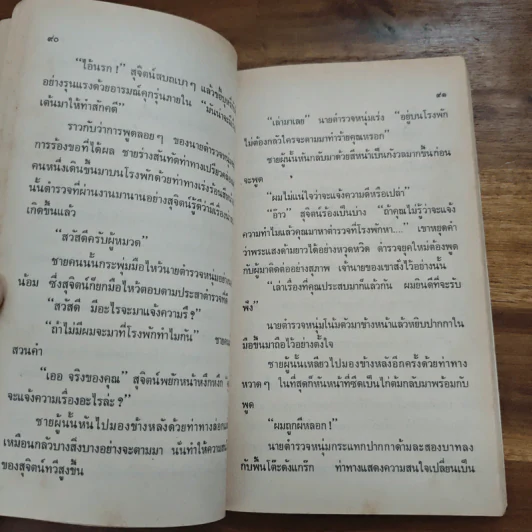 ๙๐
"ไอ้นรก!" สุจิตน์สบถเบาๆ แล้วขยี้บุหรี่
อย่างรุนแรงด้วยอารมณ์คุกรุ่นภายใน "มันน่าจะมี
เด้นมาให้ทำสักคดี"
ราวกับว่าการพูดลอยๆ ของนายตำรวจหนุ่ม
การร้องขอที่ได้ผล ชายร่างสันทัดท่าทางเปรียว
คนหนึ่งเดินขึ้นมาบนโรงพักด้วยท่าทางเร่งร้อน
นั้นตำรวจที่ผ่านงานมานานอย่างสุจิตน์รู้ดีว่ามีเรื่อง
เกิดขึ้นแล้ว
"สวัสดีครับผู้หมวด"
ชายคนนั้นกระพุ่มมือไหว้นายตำรวจหนุ่มอย่าง
น้อม ซึ่งสุจิตน์ก็ยกมือไหว้ตอบตามประสาตำรวจที่ดี
"สวัสดี มีอะไรจะมาแจ้งความรึ?"
"ถ้าไม่มีผมจะมาที่โรงพักทำไมกัน"
สวนคำ
"เออ จริงของคุณ" สุจิตน์พยักหน้าหงึกหงัก
จะแจ้งความเรื่องอะไรล่ะ?"
ชายผู้นั้นหันไปมองข้างหลังด้วยท่าทาง
เหมือนกลัวบางสิ่งบางอย่างจะตามมา นั่นทำให้ความ
ของสุจิตน์ทวีสูงขึ้น
๙๑
"เล่ามาเลย" นายตำรวจหนุ่มเร่ง "อยู่บนโรงพัก
ไม่ต้องกลัวใครจะตามมาทำร้ายคุณหรอก"
ชายผู้นั้นหันกลับมาด้วยสีหน้าเป็นกังวลมากขึ้นก่อน
จะพูด
"ผมไม่แน่ใจว่าจะแจ้งความดีหรือเปล่า"
"อ้าว" สุจิตน์ร้องเป็นบาง "ถ้าคุณไม่รู้ว่าจะแจ้ง
ความทำไมแล้วคุณมาหาตำรวจที่โรงพักหา...." เขาหยุดคำ
ว่าพระแสงด้ามยาวได้อย่างหวุดหวิด ตำรวจยุคใหม่ต้องพูด
กับผู้มาติดต่ออย่างสุภาพ เจ้านายของเขาสั่งไว้อย่างนั้น
"เล่าเรื่องที่คุณประสบมาก็แล้วกัน ผมยินดีที่จะรับ
ฟัง"
นายตำรวจหนุ่มโน้มตัวมาข้างหน้าแล้วหยิบปากกาใน
มือขึ้นมาถือไว้อย่างตั้งใจ
ชายผู้นั้นเหลียวไปมองข้างหลังอีกครั้งด้วยท่าทาง
หวาดๆ ในที่สุดก็หันหน้าที่ซีดเป็นไก่ต้มกลับมาพร้อมกับ
พูด
"ผมถูกผีหลอก!"
นายตำรวจหนุ่มกระแทกปากกาด้ามละสองบาทลง
กับพื้นโต๊ะดังแกร๊ก ท่าทางแสดงความสนใจเปลี่ยนเป็น